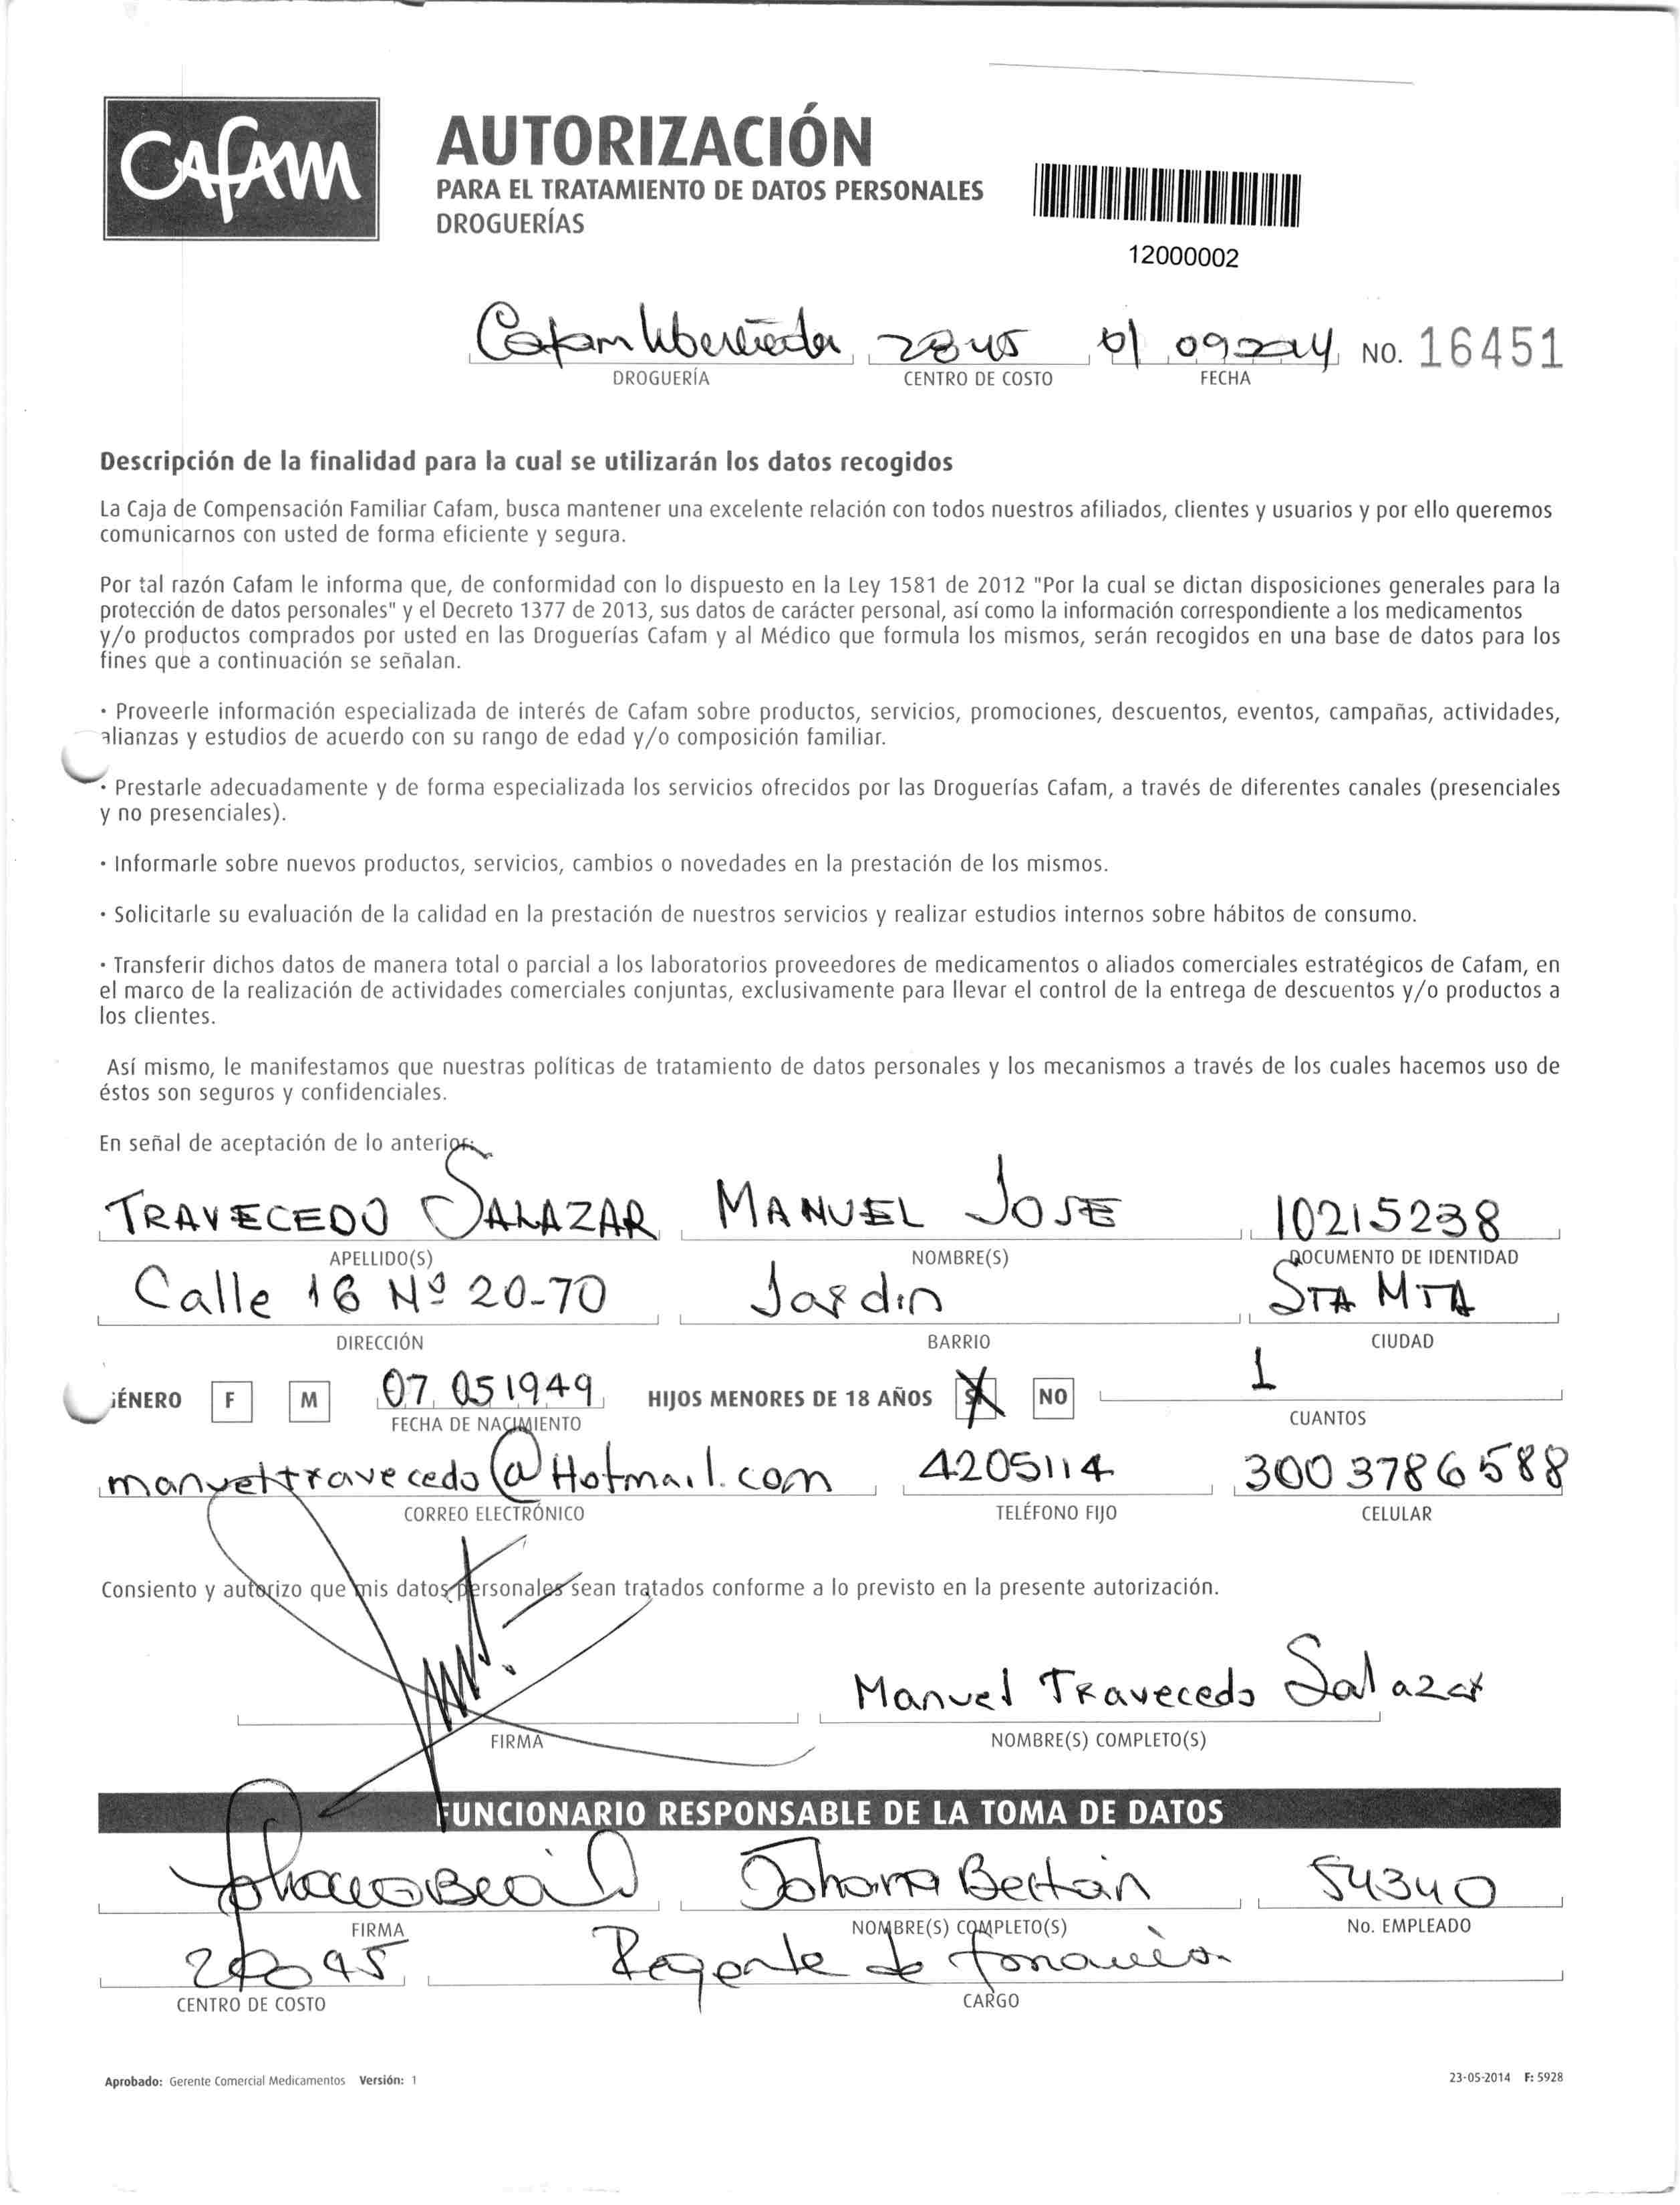 CAFAM
AUTORIZACIÓN
PARA EL TRATAMIENTO DE DATOS PERSONALES
DROGUERÍAS
12000002
Cafam 2845 01 092014 NO. 16451
DROGUERÍA CENTRO DE COSTO FECHA
Descripción de la finalidad para la cual se utilizarán los datos recogidos
La Caja de Compensación Familiar Cafam, busca mantener una excelente relación con todos nuestros afiliados, clientes y usuarios y por ello queremos
comunicarnos con usted de forma eficiente y segura.
Por tal razón Cafam le informa que, de conformidad con lo dispuesto en la Ley 1581 de 2012 "Por la cual se dictan disposiciones generales para la
protección de datos personales" y el Decreto 1377 de 2013, sus datos de carácter personal, así como la información correspondiente a los medicamentos
y/o productos comprados por usted en las Droguerías Cafam y al Médico que formula los mismos, serán recogidos en una base de datos para los
fines que a continuación se señalan.
· Proveerle información especializada de interés de Cafam sobre productos, servicios, promociones, descuentos, eventos, campañas, actividades,
alianzas y estudios de acuerdo con su rango de edad y/o composición familiar.
· Prestarle adecuadamente y de forma especializada los servicios ofrecidos por las Droguerías Cafam, a través de diferentes canales (presenciales
y no presenciales).
· Informarle sobre nuevos productos, servicios, cambios o novedades en la prestación de los mismos.
· Solicitarle su evaluación de la calidad en la prestación de nuestros servicios y realizar estudios internos sobre hábitos de consumo.
· Transferir dichos datos de manera total o parcial a los laboratorios proveedores de medicamentos o aliados comerciales estratégicos de Cafam, en
el marco de la realización de actividades comerciales conjuntas, exclusivamente para llevar el control de la entrega de descuentos y/o productos a
los clientes.
Así mismo, le manifestamos que nuestras políticas de tratamiento de datos personales y los mecanismos a través de los cuales hacemos uso de
éstos son seguros y confidenciales.
En señal de aceptación de lo anterior:
TRAVECEDO SALAZAR MANUEL JOSE 10215238
APELLIDO(S) NOMBRE(S) DOCUMENTO DE IDENTIDAD
Calle 16 Nº 20-70 Jardin STA MTA
DIRECCIÓN BARRIO CIUDAD
GÉNERO F M 07 05 1949 HIJOS MENORES DE 18 AÑOS SI NO 1
FECHA DE NACIMIENTO CUANTOS
manueltravecedo@Hotmail.com 4205114 300 3786588
CORREO ELECTRÓNICO TELÉFONO FIJO CELULAR
Consiento y autorizo que mis datos personales sean tratados conforme a lo previsto en la presente autorización.
Manuel Travecedo Salazar
FIRMA NOMBRE(S) COMPLETO(S)
FUNCIONARIO RESPONSABLE DE LA TOMA DE DATOS
Johana Beltán 54340
FIRMA NOMBRE(S) COMPLETO(S) No. EMPLEADO
Regente de
CENTRO DE COSTO CARGO
Aprobado: Gerente Comercial Medicamentos Versión: 1 23-05-2014 F: 5928